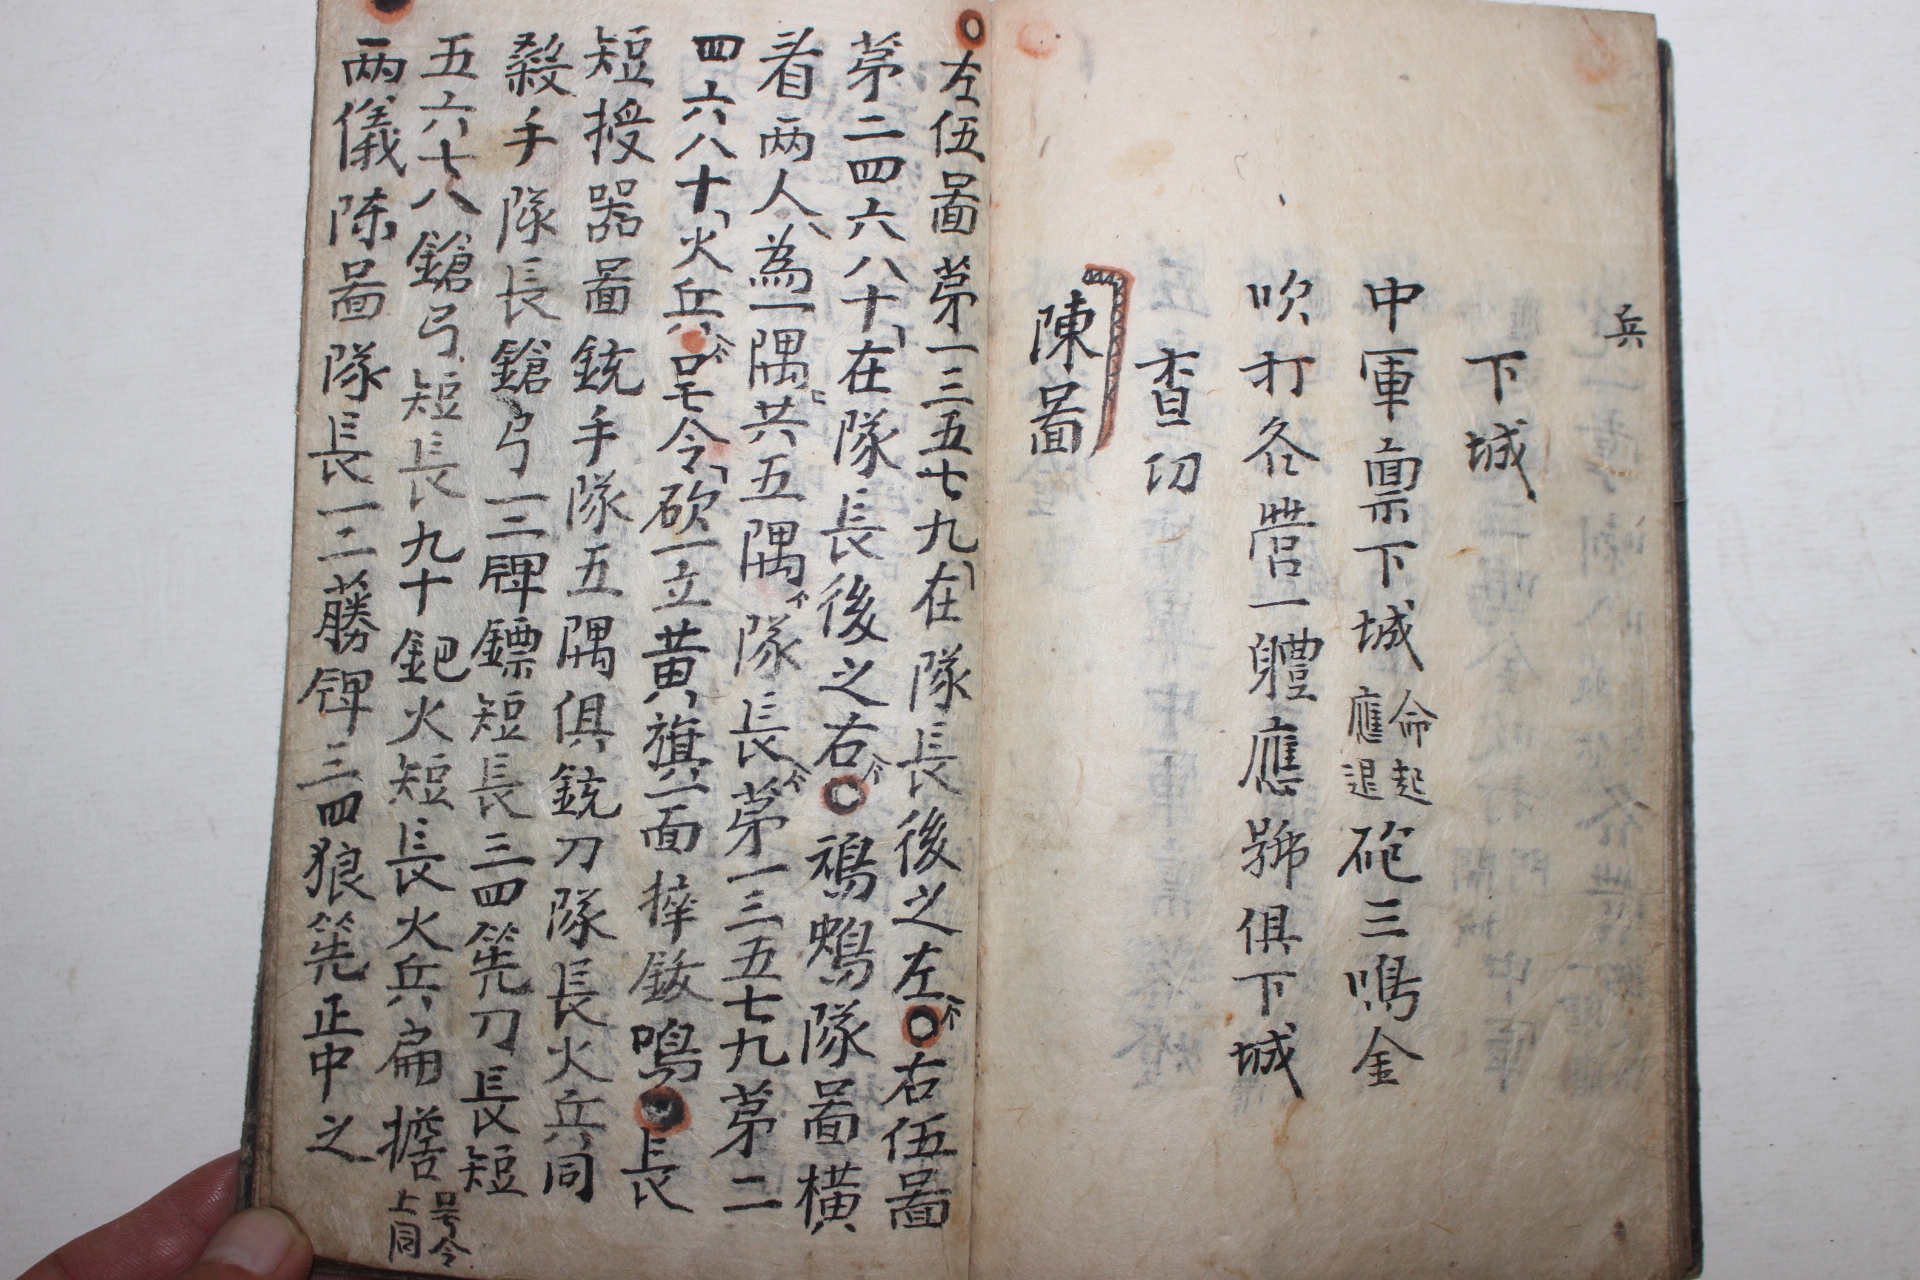 兵
下城
中軍稟下城命起應退砲三鳴金
吹打各營一軆應號俱下城
查功
陳啚
左伍啚苐一三五七九在隊長後之左○右伍啚
苐二四六八十在隊長後之右○鴻鵝隊啚橫
看兩人為一隅共五隅隊長苐一三五七九苐二
四六八十火兵号令砍一立黄旗一面摔鈸鳴○長
短授器啚銃手隊五隅俱銃刀隊長火兵同
殺手隊長鎗弓一二牌鏢短長三四筅刀長短
五六七八鎗弓短長九十鈀火短長火兵扁擔号令上同
兩儀陳啚隊長一二藤牌三四狼筅正中之